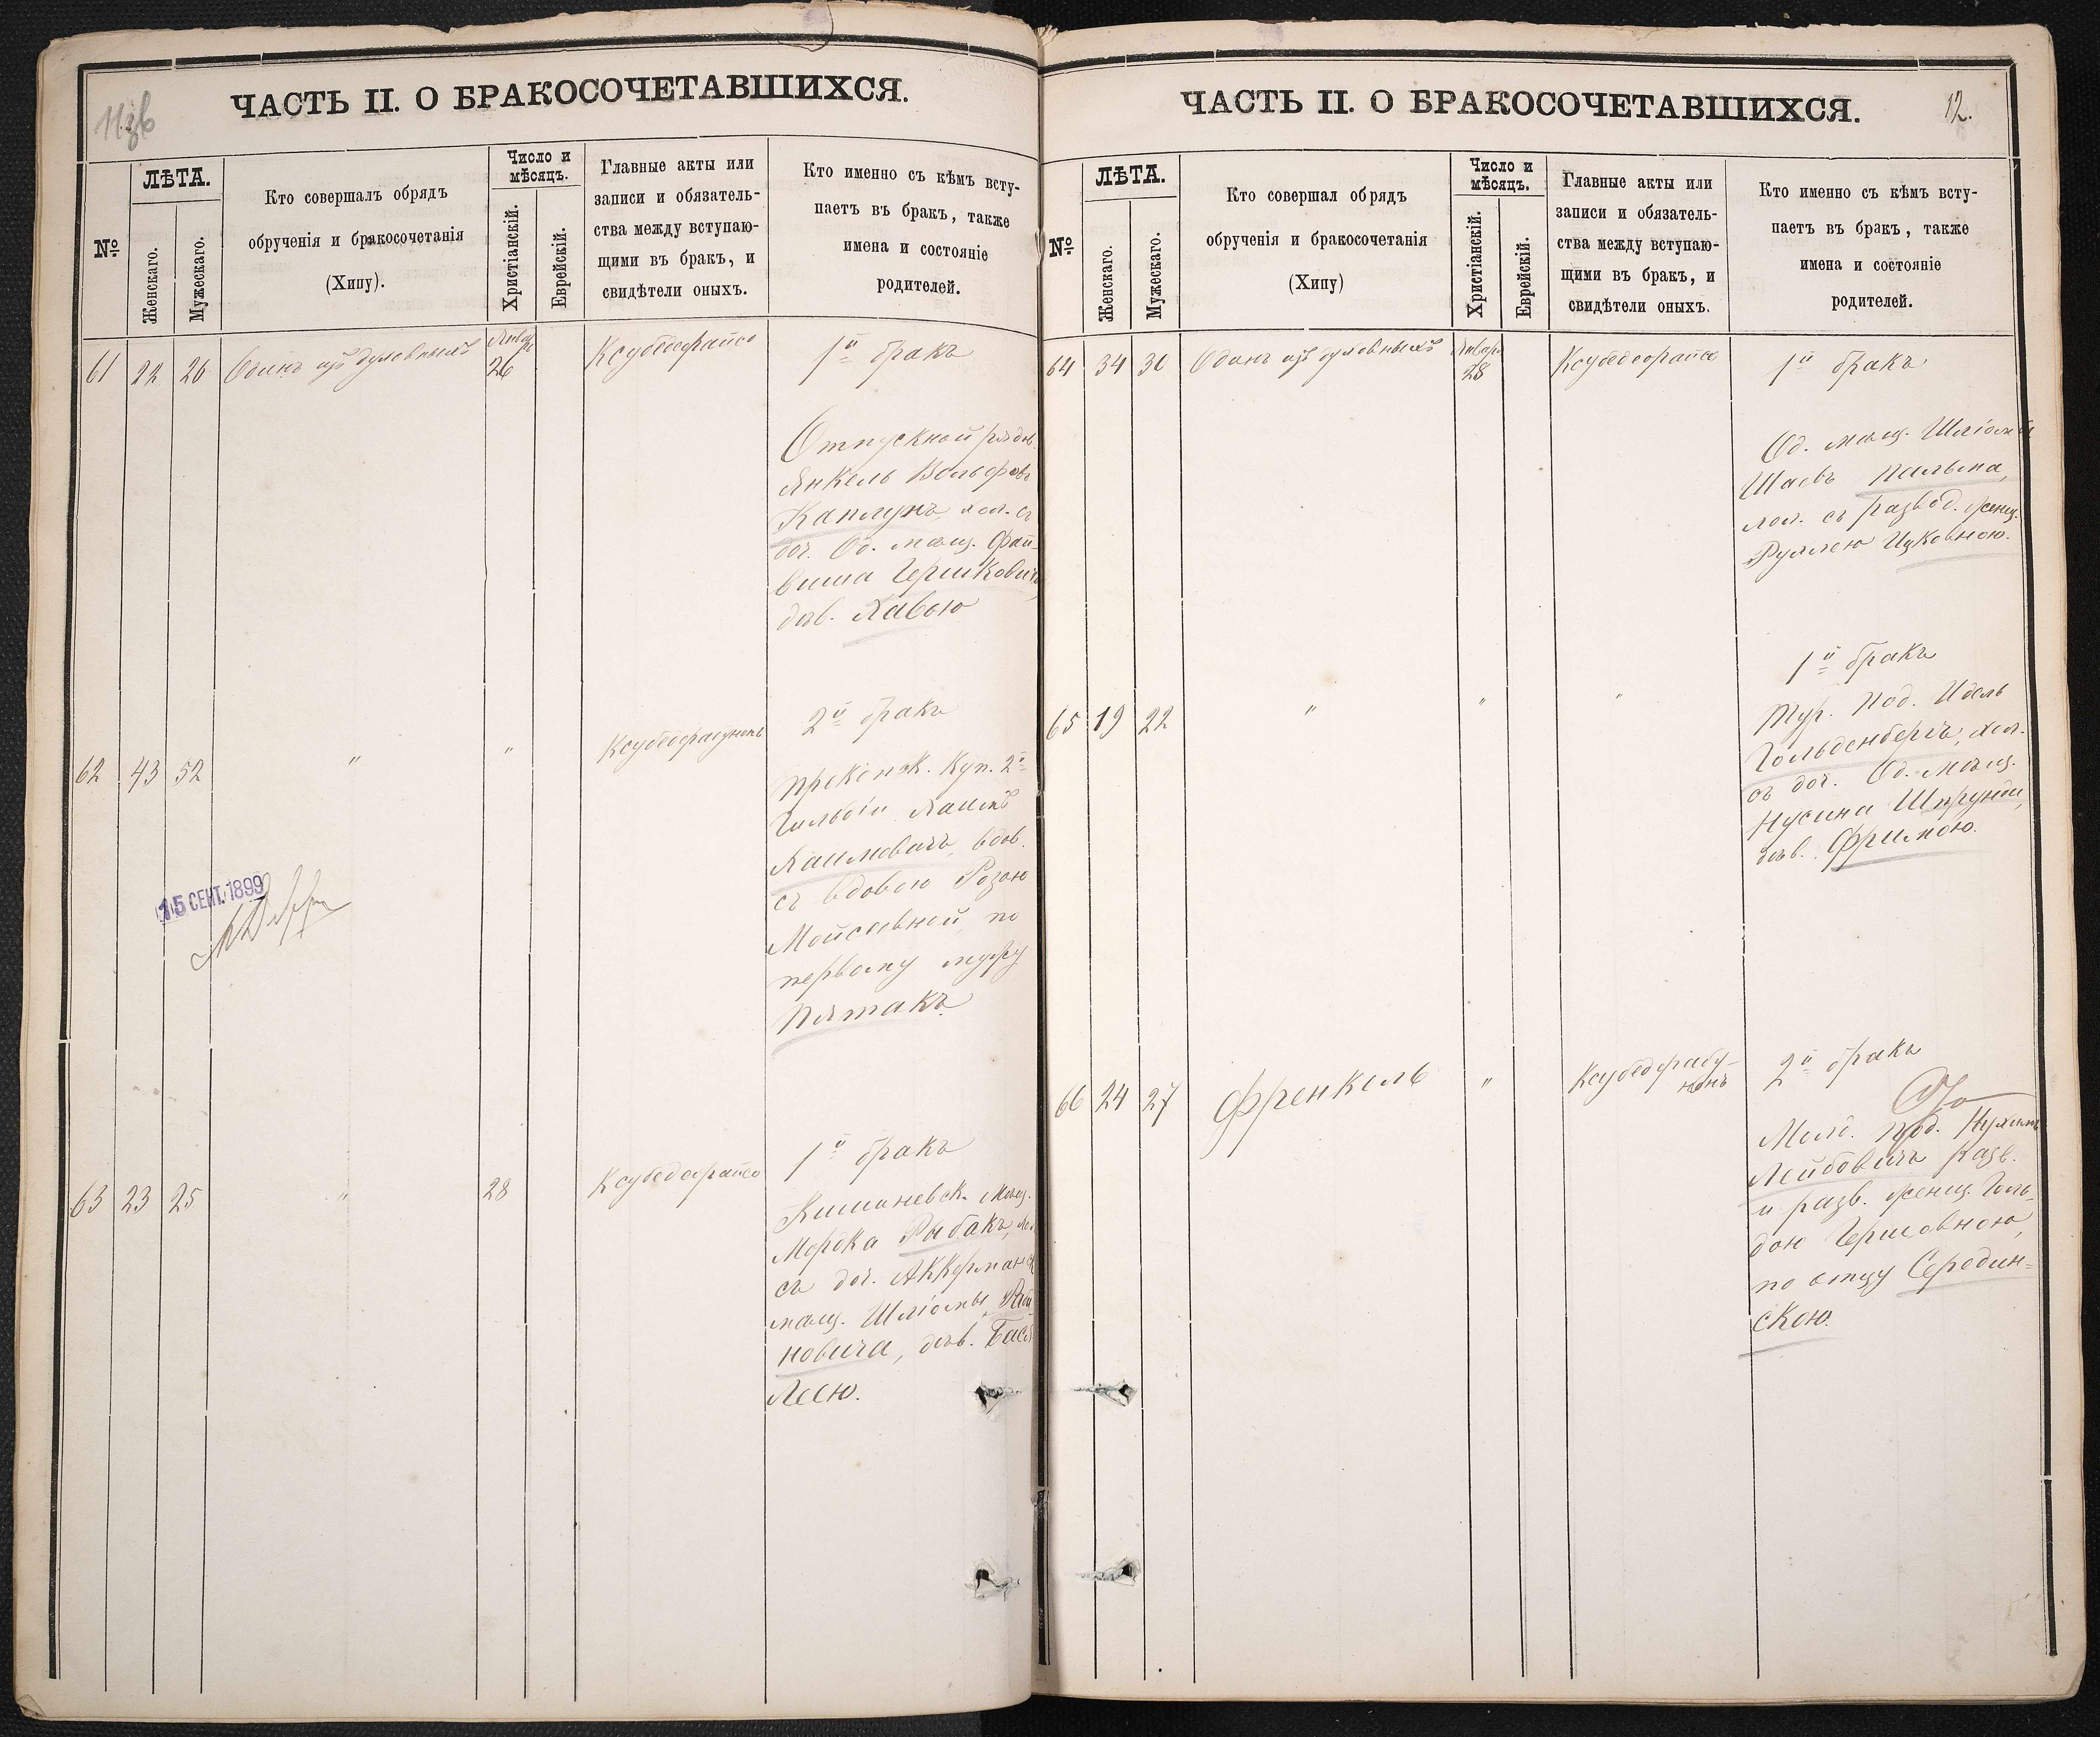 11 зв
ЧАСТЬ II. О БРАКОСОЧЕТАВШИХСЯ.
№
ЛѢТА.
Женскаго.
Мужескаго.
Кто совершалъ обрядъ
обрученія и бракосочетанія
(Хипу).
Число и
мѣсяцъ.
Христіанскій.
Еврейскій.
Главные акты или
записи и обязатель-
ства между вступаю-
щими въ бракъ, и
свидѣтели оныхъ.
Кто именно съ кѣмъ всту-
паетъ въ бракъ, также
имена и состояніе
родителей.
61 22 26 Одинъ изъ духовныхъ
Январ.
26
Ксубедерайсо
1й бракъ
Отпускной рядов.
Янкель Вольфовъ
Каплунъ, хол. съ
доч. Од. мѣщ. Фай-
виша Гершковича,
дѣв. Хавою
62 43 52 " "
2й бракъ
Куп. 2й
Гильдіи Хаимъ
Хаимовичъ, вдов.
съ вдовою Розою
Мойсеевной, по
первому мужу
Пятакъ.
15 СЕНТ. 1899
63 23 25 " 28 Ксубедерайсо
1й бракъ
Кишиневск. мѣщ.
Мордка Рыбакъ, хол.
съ доч. Аккерманск.
мѣщ. Шліомы Раби
новича, дѣв. Бася
Леею.
ЧАСТЬ II. О БРАКОСОЧЕТАВШИХСЯ.
12.
№
ЛѢТА.
Женскаго.
Мужескаго.
Кто совершал обрядъ
обрученія и бракосочетанія
(Хипу)
Число и
мѣсяцъ.
Христіанскій.
Еврейскій.
Главные акты или
записи и обязатель-
ства между вступаю-
щими въ бракъ, и
свидѣтели оныхъ.
Кто именно съ кѣмъ всту-
паетъ въ бракъ, также
имена и состояніе
родителей.
64 34 30 Одинъ изъ духовныхъ
Январ.
28
Ксубедерайсо
1й бракъ
Од. мѣщ. Шліома
Шаевъ Пальма,
хол. съ развод. женщ.
Рухлею Ицковною.
65 19 22 " " "
1й бракъ
Тур. Под. Идель
Гольденбергъ, хол.
съ доч. Од. мѣщ.
Нусина Шпрунди,
дѣв. Фримою.
66 24 27 Френкель "
2й бракъ
Молд. под. Нухимъ
Лейбовичъ разв.
и разв. женщ. Голь-
дою Гершовною,
по отцу Середин-
скою.